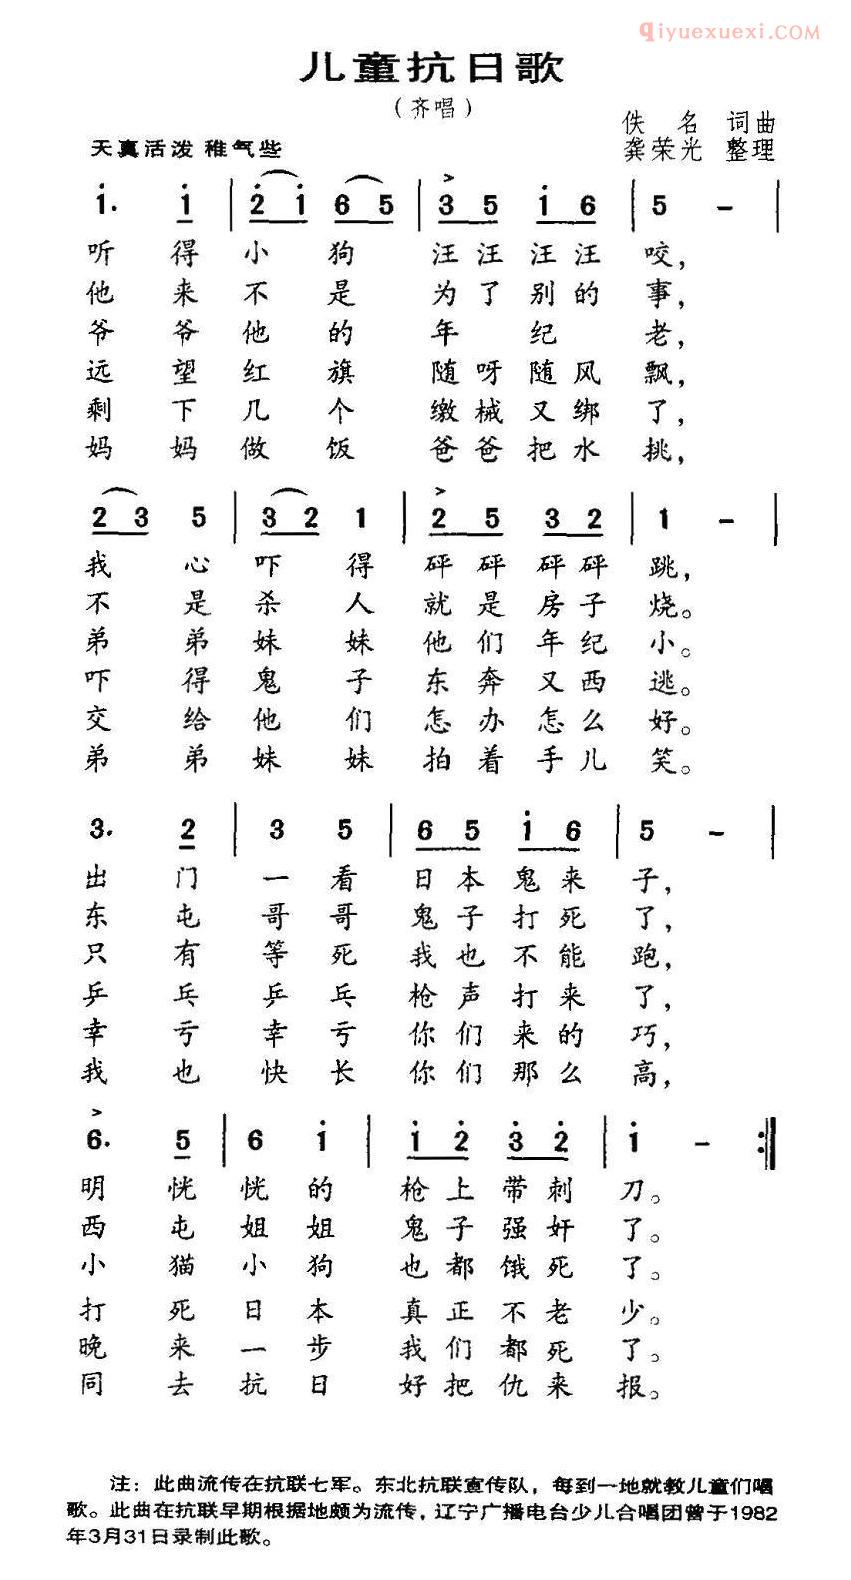 qiyuexuexi.COM
儿童抗日歌
（齐唱）
佚 名 词曲
天真活泼 稚气些
龚荣光 整理
1. 1 | 2 1 6 5 | 3 5 1 6 | 5 - |
听 得 小 狗 汪 汪 汪 汪 咬，
他 来 不 是 为 了 别 的 事，
爷 爷 他 的 年 纪 老，
远 望 红 旗 随 呀 随 风 飘，
剩 下 几 个 缴 械 又 绑 了，
妈 妈 做 饭 爸 爸 把 水 挑，
2 3 5 | 3 2 1 | 2 5 3 2 | 1 - |
我 心 吓 得 砰 砰 砰 砰 跳，
不 是 杀 人 就 是 房 子 烧。
弟 弟 妹 妹 他 们 年 纪 小。
吓 得 鬼 子 东 奔 又 西 逃。
交 给 他 们 怎 办 怎 么 好。
弟 弟 妹 妹 拍 着 手 儿 笑。
3. 2 | 3 5 | 6 5 1 6 | 5 - |
出 门 一 看 日 本 鬼 来 子，
东 屯 哥 哥 鬼 子 打 死 了，
只 有 等 死 我 也 不 能 跑，
乒 乓 乒 乓 枪 声 打 来 了，
幸 亏 幸 亏 你 们 来 的 巧，
我 也 快 长 你 们 那 么 高，
6. 5 | 6 1 | 1 2 3 2 | 1 - :|
明 恍 恍 的 枪 上 带 刺 刀。
西 屯 姐 姐 鬼 子 强 奸 了。
小 猫 小 狗 也 都 饿 死 了。
打 死 日 本 真 正 不 老 少。
晚 来 一 步 我 们 都 死 了。
同 去 抗 日 好 把 仇 来 报。
注：此曲流传在抗联七军。东北抗联宣传队，每到一地就教儿童们唱
歌。此曲在抗联早期根据地颇为流传，辽宁广播电台少儿合唱团曾于1982
年3月31日录制此歌。